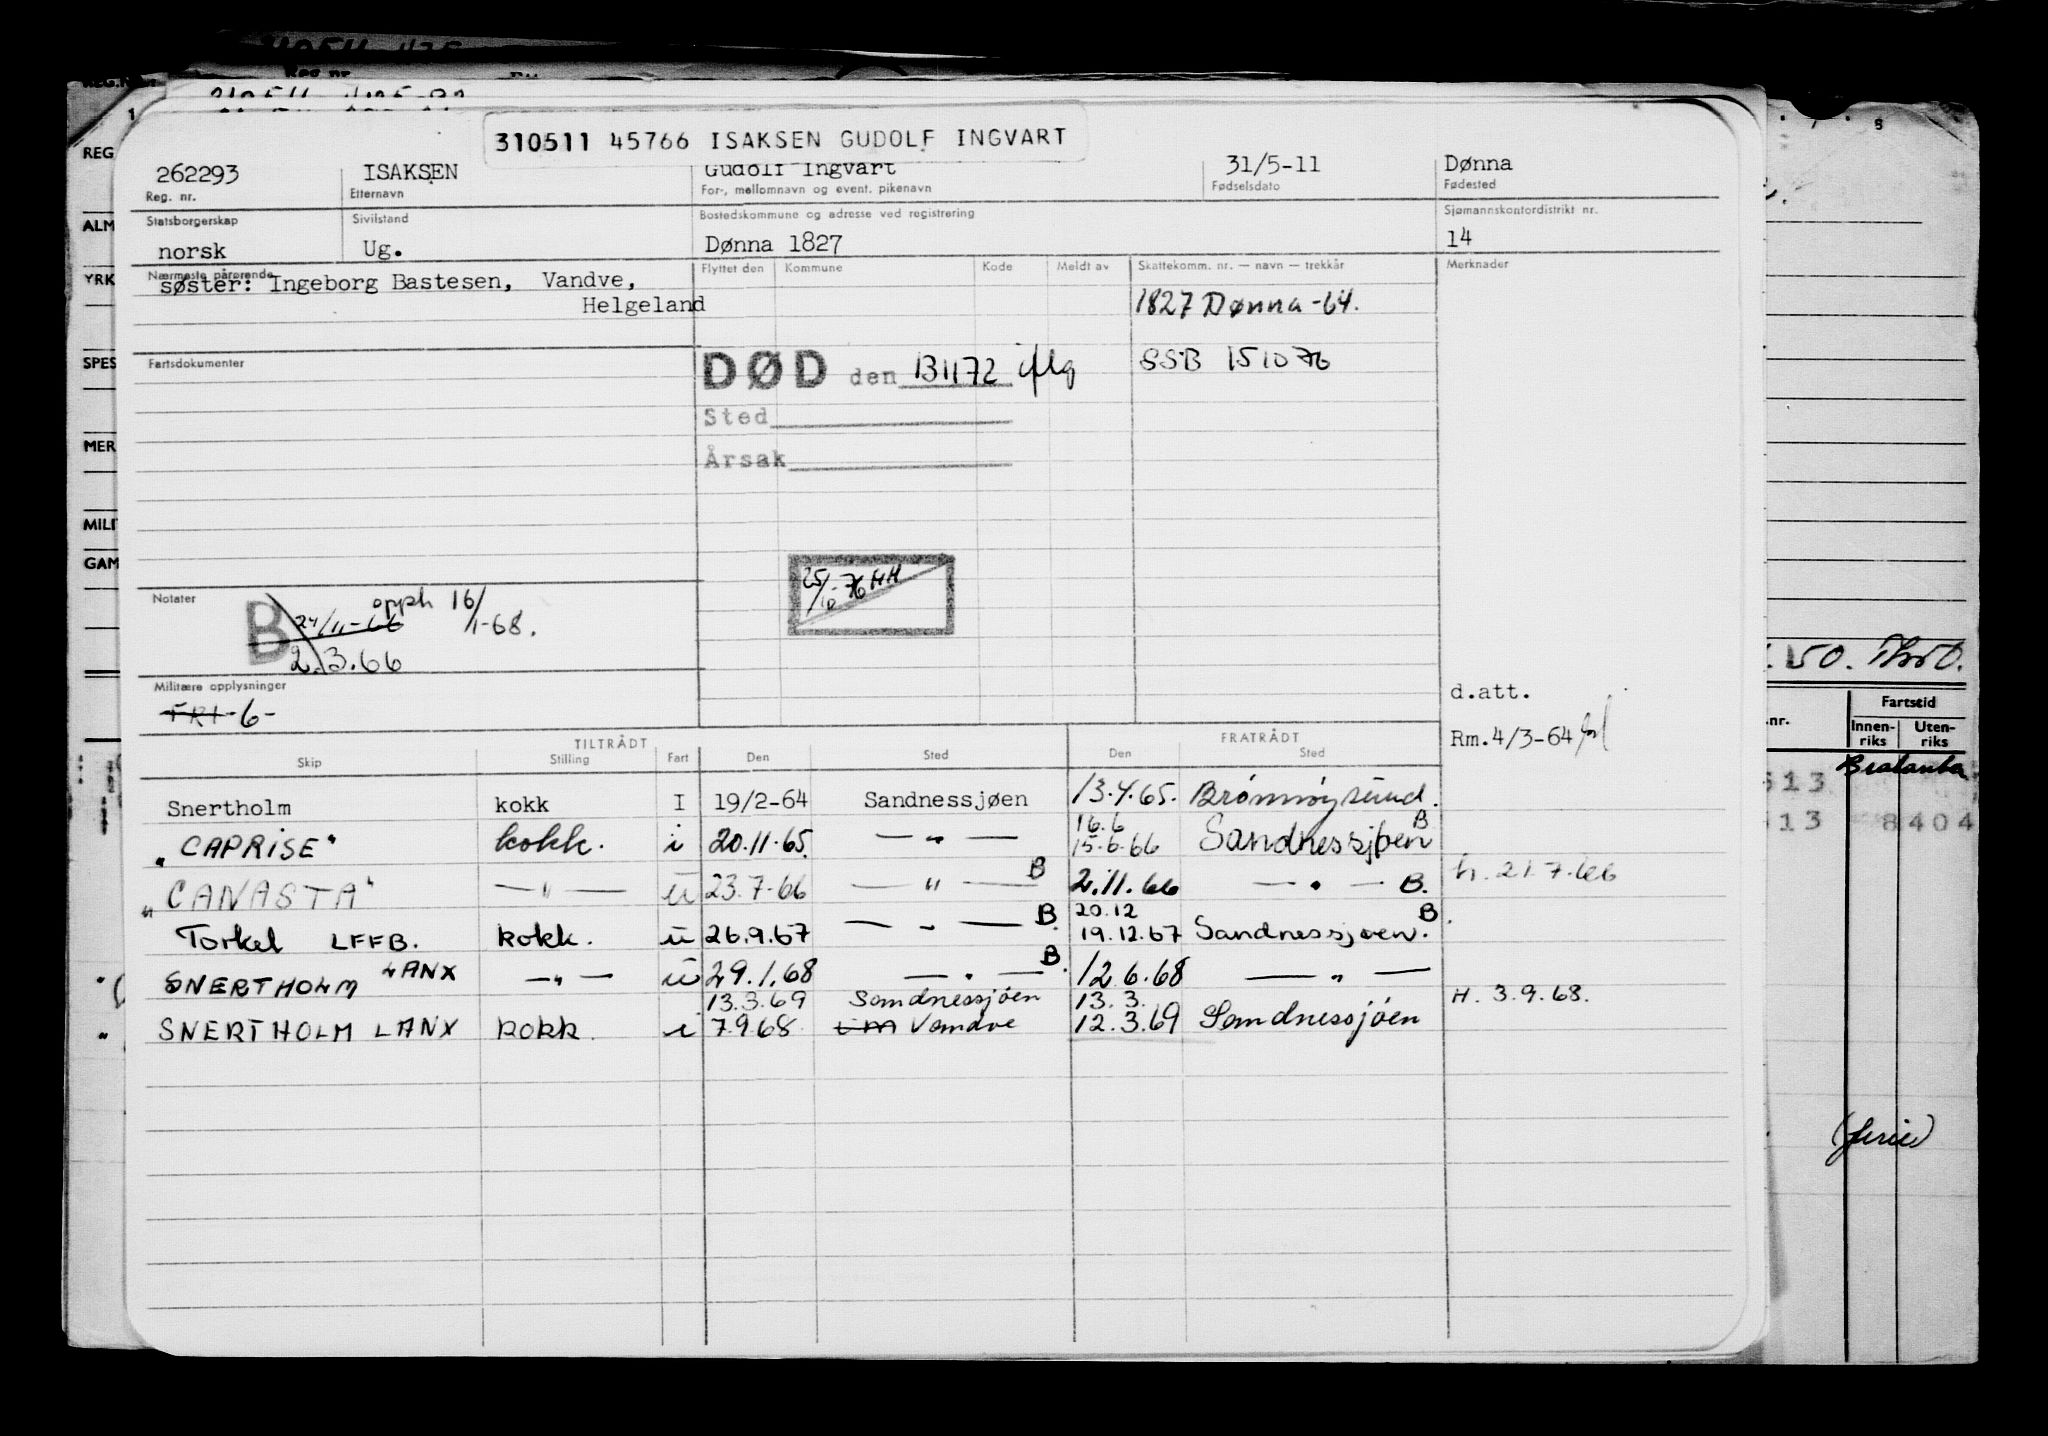 310511 45766 ISAKSEN GUDOLF INGVART
262293 ISAKSEN Gudolf Ingvart 31/5-11 Dønna
Reg. nr. Etternavn For-, mellomnavn og event. pikenavn Fødselsdato Fødested
Statsborgerskap Sivilstand Bostedskommune og adresse ved registrering Sjømannskontordistrikt nr.
norsk Ug. Dønna 1827 14
Nærmeste pårørende Flyttet den Kommune Kode Meldt av Skattekomm. nr. — navn — trekkår Merknader
søster: Ingeborg Bastesen, Vandve,
Helgeland
1827 Dønna -64.
Fartsdokumenter
DØD den 131172 iflg SSB 151076
Sted
Årsak
25/10-76 HH
Notater
B 24/11-66 opph 16/1-68.
2.3.66
Militære opplysninger
FRI -6-
d.att.
Rm.4/3-64
TILTRÅDT FRATRÅDT
Skip Stilling Fart Den Sted Den Sted
Snertholm kokk I 19/2-64 Sandnessjøen 13.4.65. Brønnøysund.
16.6 B
"CAPRISE" kokk. i 20.11.65. — " — 15.6.66 Sandnessjøen
"CANASTA" — " — u 23.7-66 — " — B 2.11.66 — " — B. h. 21.7.66
20.12 B.
Torkel LFFB. kokk. u 26.9.67 — " — B. 19.12.67 Sandnessjøen.
SNERTHOLM LANX — " — u 29.1.68 — " — B. 12.6.68 — " —
13.3.69 Sandnessjøen 13.3. H. 3.9.68.
" SNERTHOLM LANX kokk. i 7.9.68. Vandve 12.3.69 Sandnessjøen
REG
ALM
YRK
SPES
MER
MILI
GAM
Reg nr
8
.nr. Fartstid
Innen-riks Uten-riks
513
513 8404
(ferie)